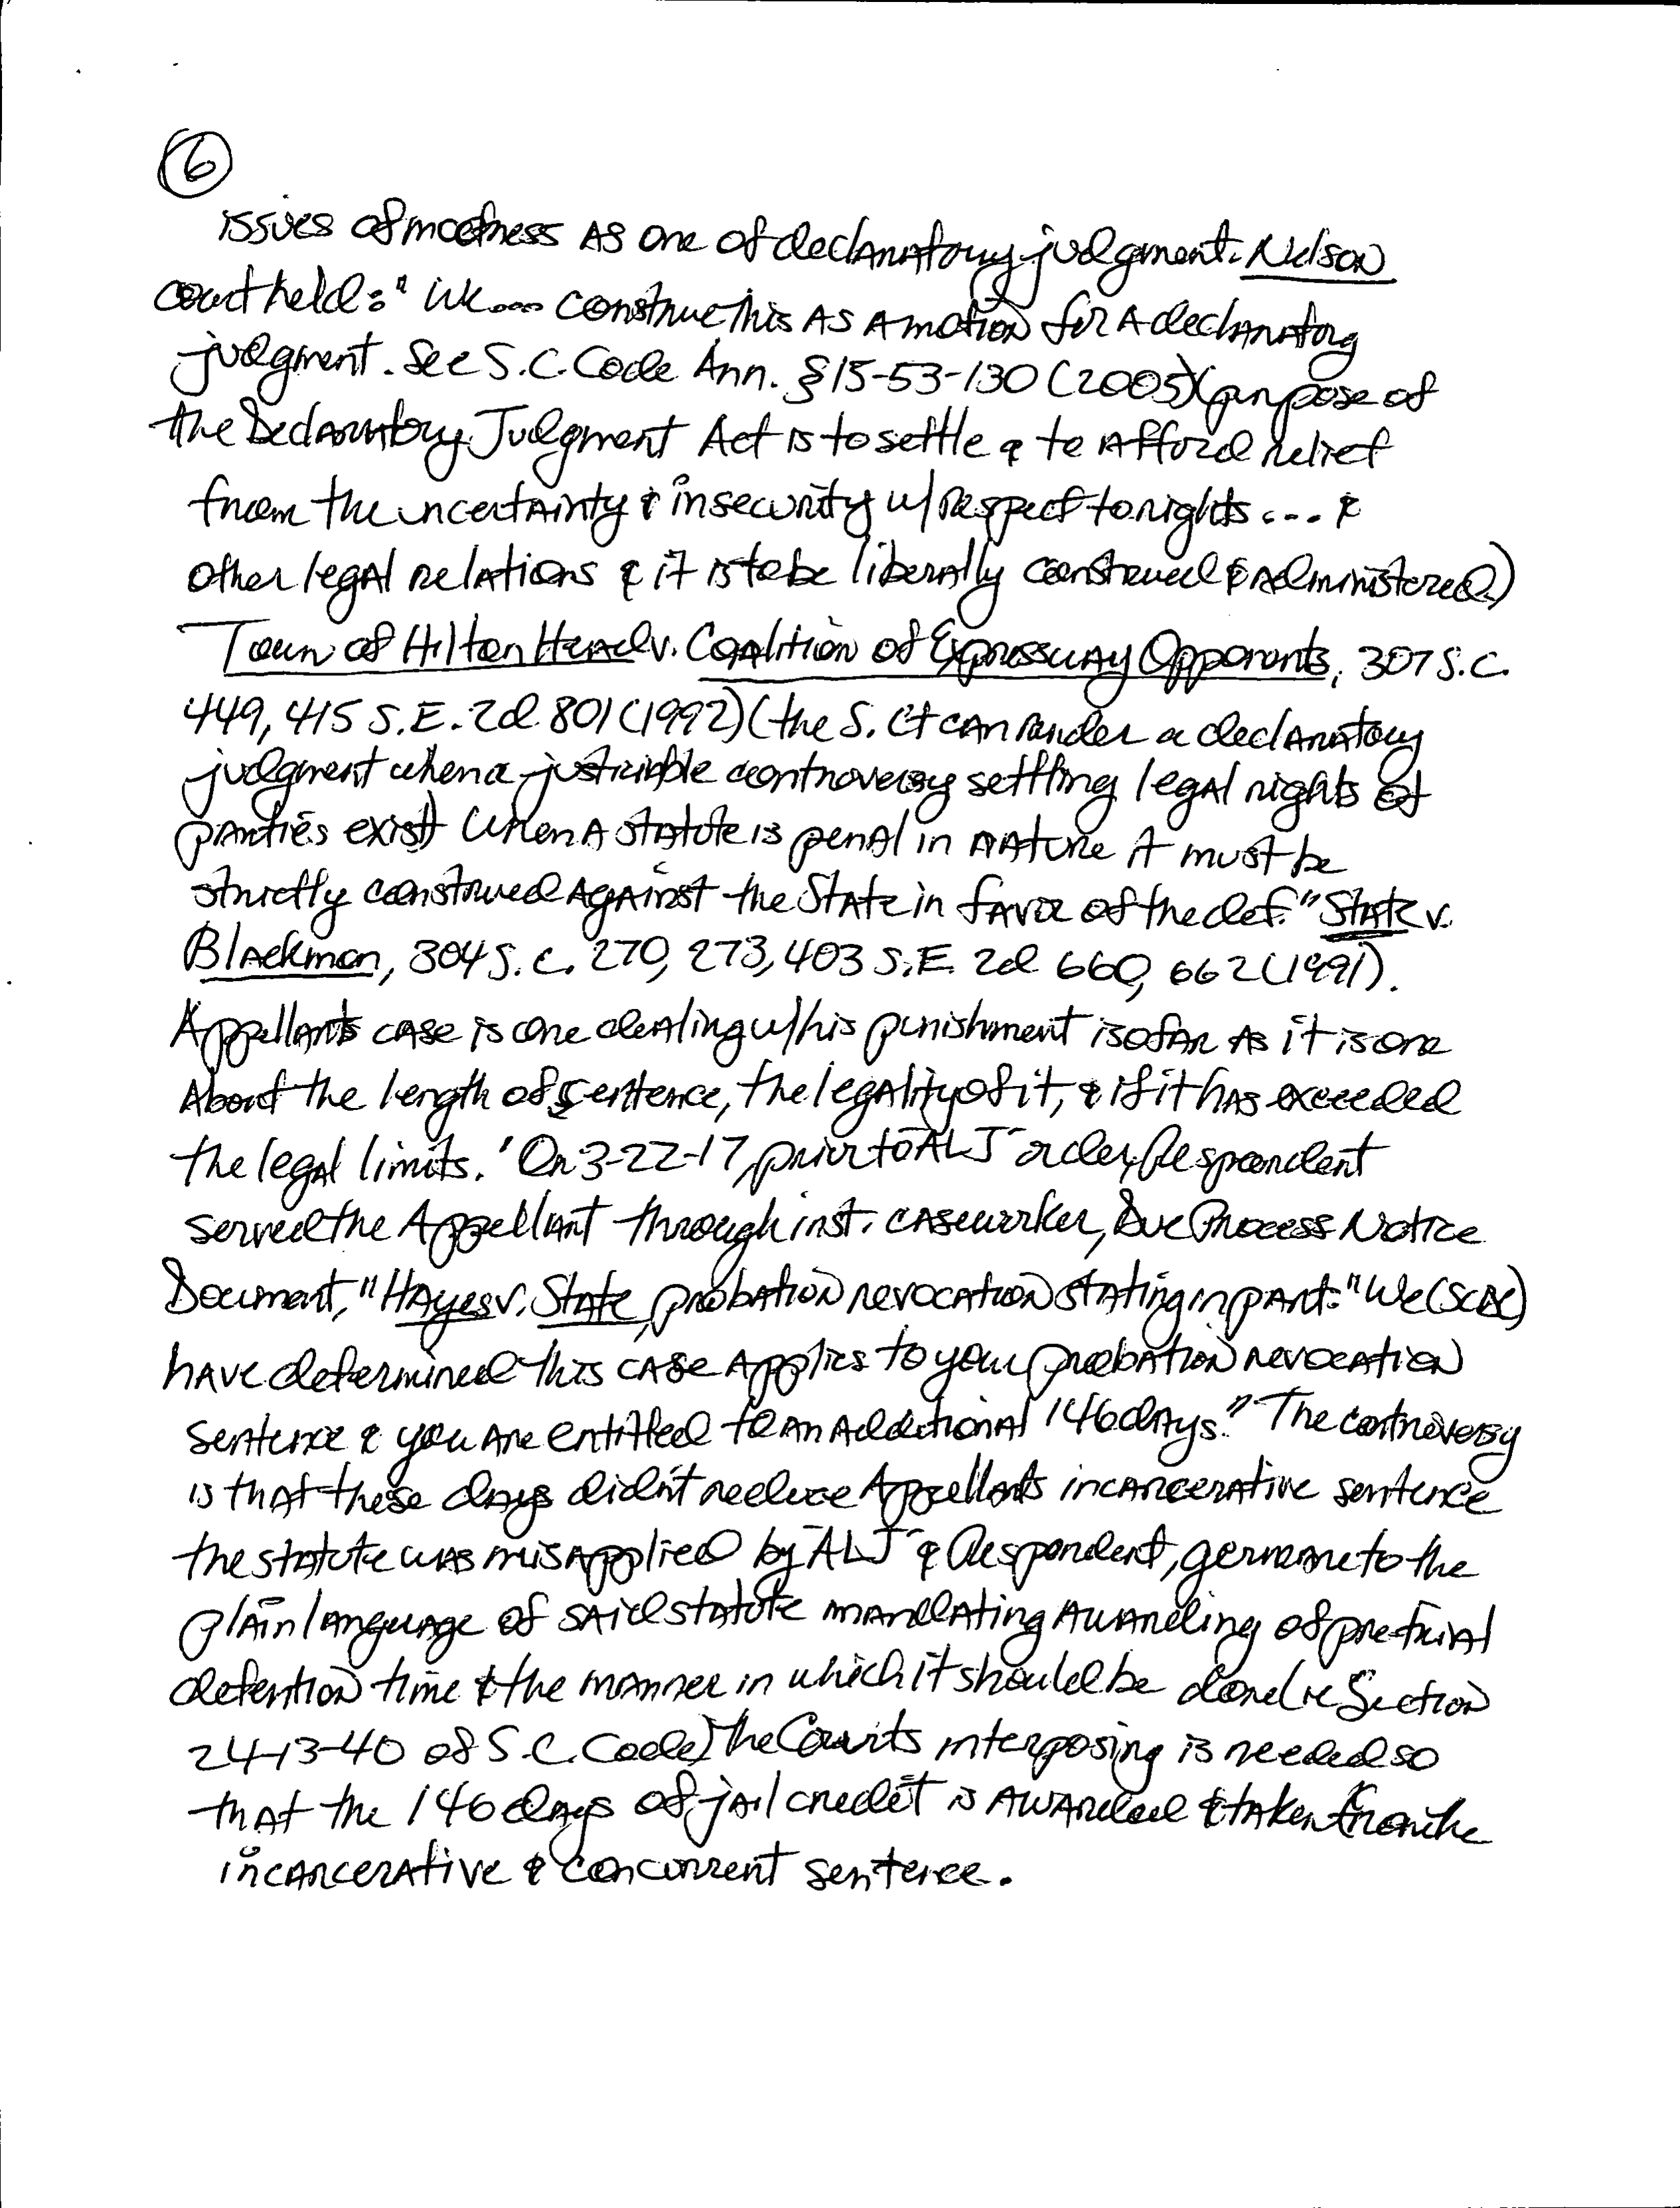 6
issues of mootness as one of declaratory judgment. Nelson
court held: "We.... construe this as a motion for a declaratory
judgment. See S.C. Code Ann. §15-53-130 (2005)(purpose of
the Declaratory Judgment Act is to settle & to afford relief
from the uncertainty & insecurity w/respect to rights.... &
other legal relations & it is to be liberally construed & administered.)
Town of Hilton Head v. Coalition of Expressway Opponents, 307 S.C.
449, 415 S.E. 2d 801 (1992) (the S. Ct can render a declaratory
judgment when a justiciable controversy settling legal rights of
parties exist) When a statute is penal in nature it must be
strictly construed against the State in favor of the def." State v.
Blackmon, 304 S.C. 270, 273, 403 S.E. 2d 660, 662 (1991).
Appellants case is one dealing w/his punishment isofar as it is one
about the length of sentence, the legality of it, & if it has exceeded
the legal limits. 'On 3-22-17, prior to ALJ order, Respondent
served the Appellant through inst. caseworker, Due Process Notice
Document, "Hayes v. State, probation revocation stating in part: "We (SCDC)
have determined this case applies to your probation revocation
sentence & you are entitled to an additional 146 days." The controversy
is that these days didn't reduce Appellants incarcerative sentence
the statute was misapplied by ALJ & Respondent, germane to the
plain language of said statute mandating awarding of pre-trial
detention time & the manner in which it should be done (re Section
24-13-40 of S.C. Code) The Courts interposing is needed so
that the 146 days of jail credit is awarded & taken from the
incarcerative & concurrent sentence.